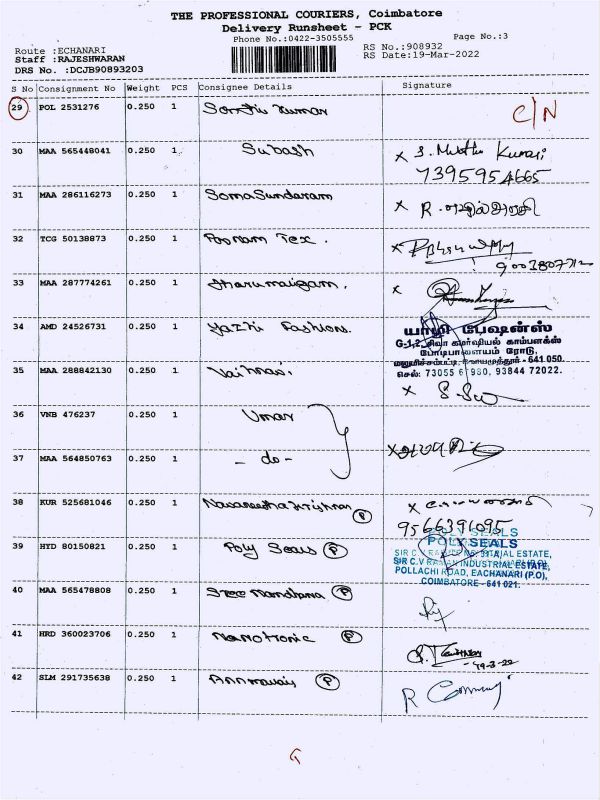 THE PROFESSIONAL COURIERS, Coimbatore
Delivery Runsheet - PCK
Phone No.:0422-3505555
Page No.:3
Route :ECHANARI
RS No.:908932
Staff :RAJESHWARAN
RS Date:19-Mar-2022
DRS No. :DCJB90893203
S No Consignment No Weight PCS Consignee Details Signature
29 POL 2531276 0.250 1 Kumar C/N
30 MAA 565448041 0.250 1 Subash x S. Muthu Kumari
7395954665
31 MAA 286116273 0.250 1 SomaSundaram x R.
32 TCG 50138873 0.250 1 Poonam Tex. x
9003807712
33 MAA 287774261 0.250 1 x
34 AMD 24526731 0.250 1 Yazhi Fashions.
யாழி பேஷன்ஸ்
G-1,2, சிவா கமர்ஷியல் காம்பளக்ஸ்
போடிபாளையம் ரோடு,
மலுமிச்சம்பட்டி, கோயமுத்தூர் - 641 050.
செல்: 73055 67980, 93844 72022.
35 MAA 288842130 0.250 1 x
36 VNB 476237 0.250 1 Umar
37 MAA 564850763 0.250 1 - do - x
38 KUR 525681046 0.250 1 P x
9566391095
39 HYD 80150821 0.250 1 Poly Seals P
POLY SEALS
SIR C.V RAMAN INDUSTRIAL ESTATE,
POLLACHI ROAD, EACHANARI (P.O),
COIMBATORE - 641 021.
40 MAA 565478808 0.250 1 Sree Nandhana P
41 HRD 360023706 0.250 1 Nanotronic P
19-3-22
42 SLM 291735638 0.250 1 Annamalai P R